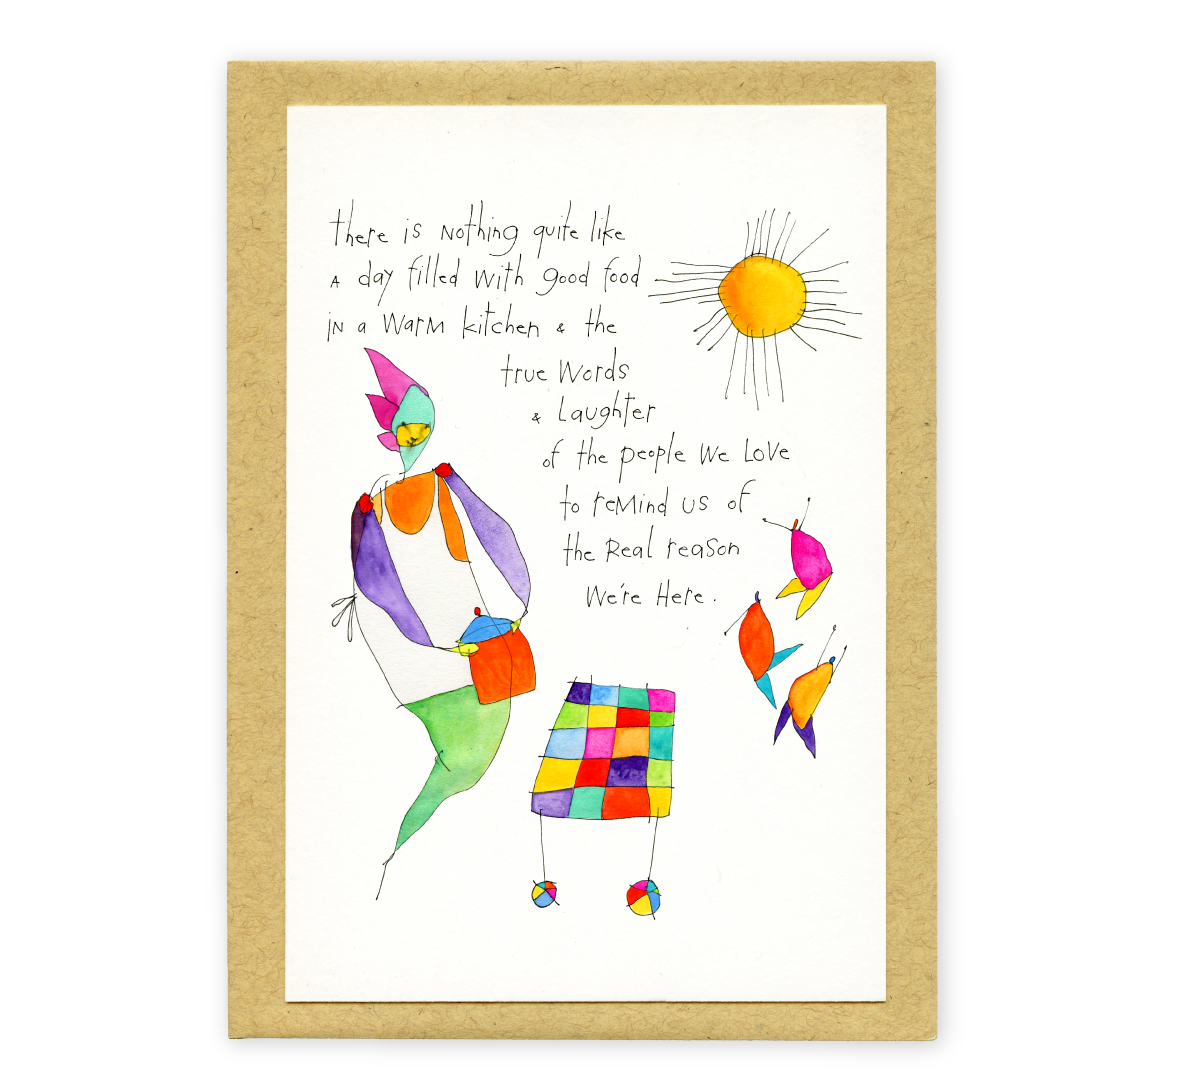 there is nothing quite like
a day filled with good food
in a warm kitchen & the
true words
& laughter
of the people we love
to remind us of
the real reason
we're here.